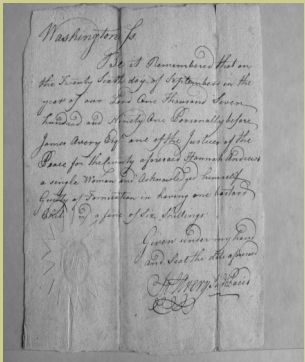 Washington Ss
Be it Remembered that on
the Twenty Sixth day of September in the
year of our Lord One Thousand Seven
hundred and Ninety One Personally before
James Avery Esqr. one of the Justices of the
Peace for the County aforesaid Hannah Andrews
a single Woman and Acknowledged himself
Guilty of Fornication in having one bastard
Child a fine of Six Shillings
Given under my hand
and Seal the date aforesaid
Jas Avery Jus Pacis